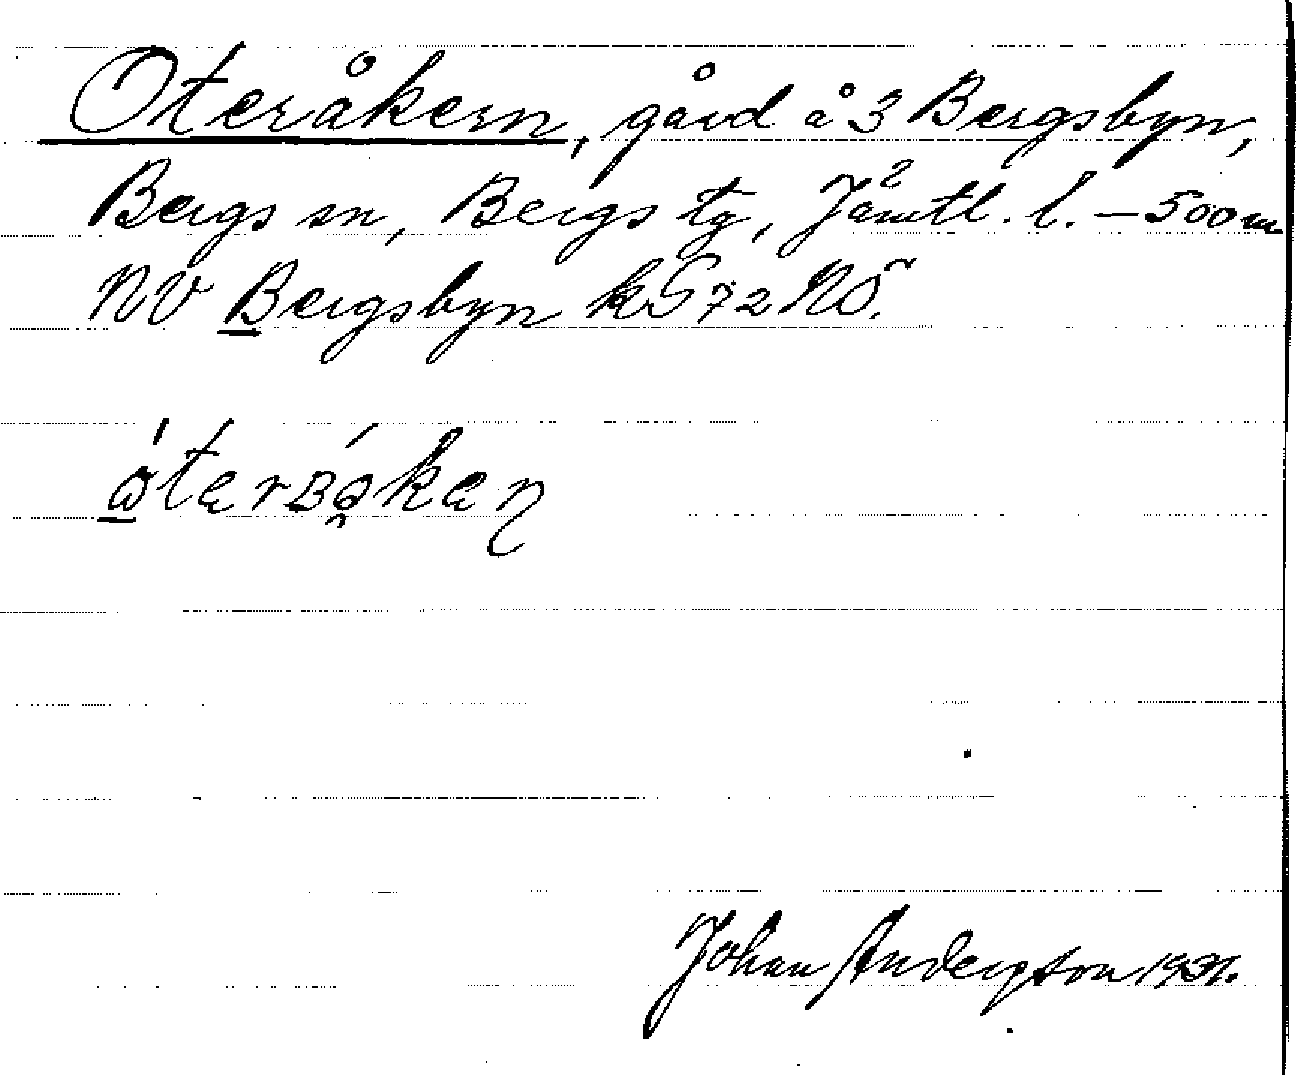 Oteråkern, gård å 3 Bergsbyn,
Bergs sn, Bergs tg, Jämtl. l. – 500 m
NV Bergsbyn kS 72 NO.
Johan Anderson 1931.